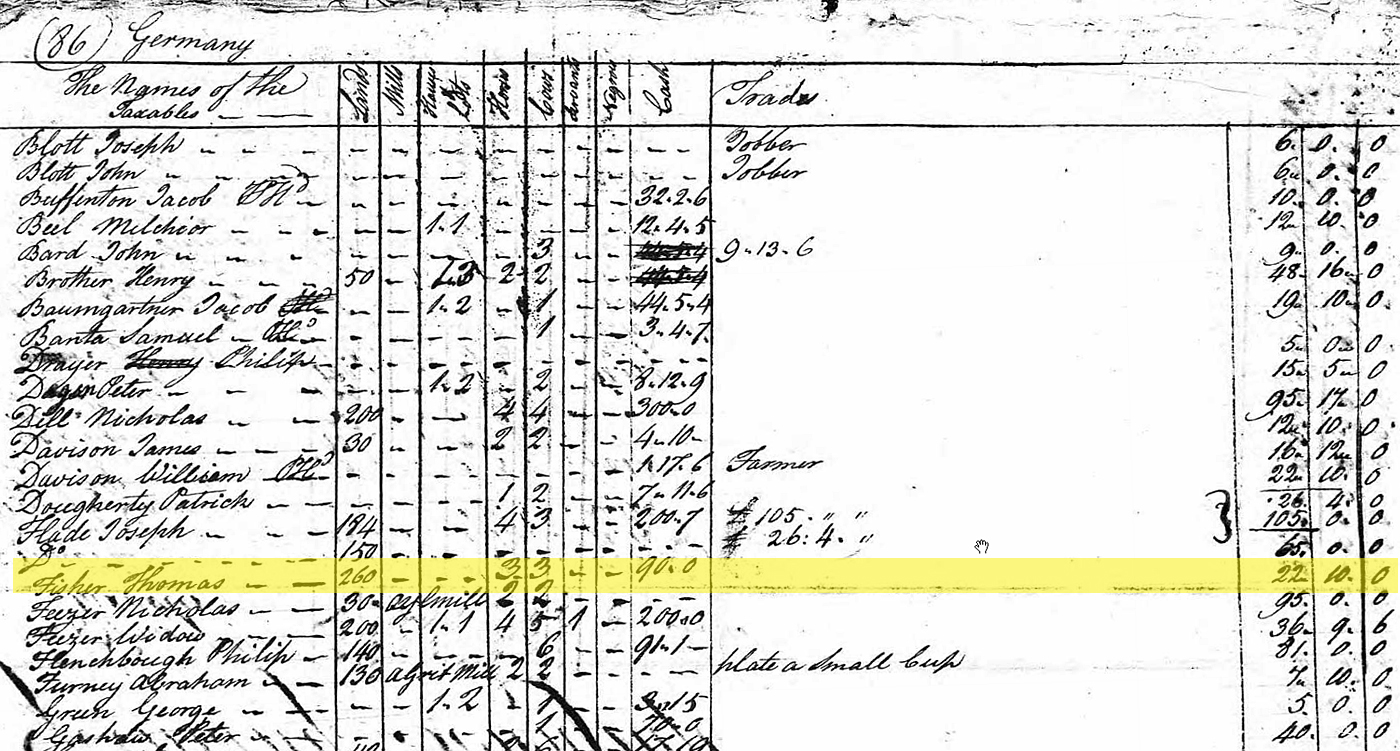 (86) Germany
The Names of the Taxables Lands Mills Houses & Lotts Horses Cows Servants Negroes Cash Trades
Blott Joseph - - - - - - - - - - Jobber 6. 0. 0
Blott John - - - - - - - - - Jobber 6. 0. 0
Buffenton Jacob - - - - - - - 32.2.6 10. 0. 0
Beel Melchior - - - - - 1.1 - - - - 12.4.5 12. 10. 0
Bard John - - - - - 3 - - 9.13.6 9. 0. 0
Brother Henry - - - 50 - 1.3 2 2 - - 48. 16. 0
Baumgartner Jacob - - 1.2 - 1 - - 44.5.4 19. 10. 0
Banta Samuel - - - - - 1 - - 3.4.7
Drayer Henry Philip - - - - - - - - 5. 0. 0
Peter - - - - 1.2 - 2 - - 8.12.9 15. 5. 0
Dill Nicholas - - 200 - - 4 4 - - 300.0 95. 17. 0
Davison James - - 30 - - 2 2 - - 4.10- 12. 10. 0
Davison William - - - - - - - 1.17.6 Farmer 16. 12. 0
Dougherty Patrick - - - - 1 2 - - 7.11.6 22. 10. 0
Flade Joseph - - 184 - - 4 3 - - 200.7 £ 105. " " 26. 4. 0
Do - - - 150 - - - - - - £ 26: 4. " 105. 0. 0
Fisher Thomas - - 260 - - 3 3 - - 90.0 65. 0. 0
Feezer Nicholas - - 30 - mill 2 2 - - - 22. 10. 0
Feezer Widow - - 200 - 1.1 4 5 1 - 200.0 95. 0. 0
Flenchbough Philip - 140 - - - 6 - - 91.1- 36. 9. 6
Furney Abraham - - 130 a Grist Mill 2 2 - - - plate a small Cup 81. 0. 0
Green George - - - - 1.2 - 1 - - 3.15 7. 10. 0
Peter - - - - - 1 - - 70.0 5. 0. 0
40. 0. 0